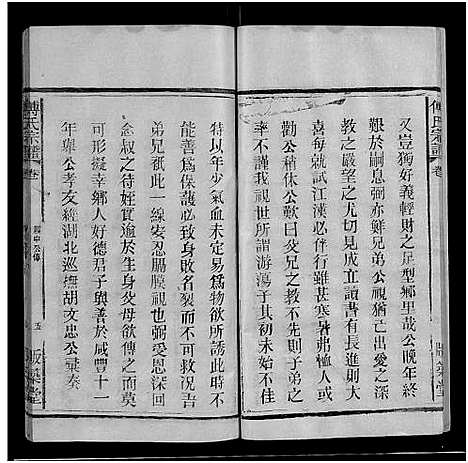 傅氏宗譜
卷
又豈獨好義輕財之足型鄉里哉公晚年終
艱於嗣息弼亦鮮兄弟公視猶己出愛之深
教之嚴望之尤切見成立讀書有年長進則大
喜每就試江漢必偕行雖甚寒暑弗憚人或
勸公稍休公歎曰父兄之教不先則子弟之
率不謹我視世所謂游蕩子其初非有大不
特以年少氣血未定易為物欲所誘此時不
能善為保護必致身敗名裂而不可救況吾
弟兄祇此一線安忍膈膜視也弼愛恩深回
念叔之待姪實逾於生母欲傳之而莫
可形擬幸鄉人好德君子與善於咸豐十一
年舉公孝友經湖北巡撫胡文忠公彙奏
傅氏宗譜
卷
五
版築堂
版築堂